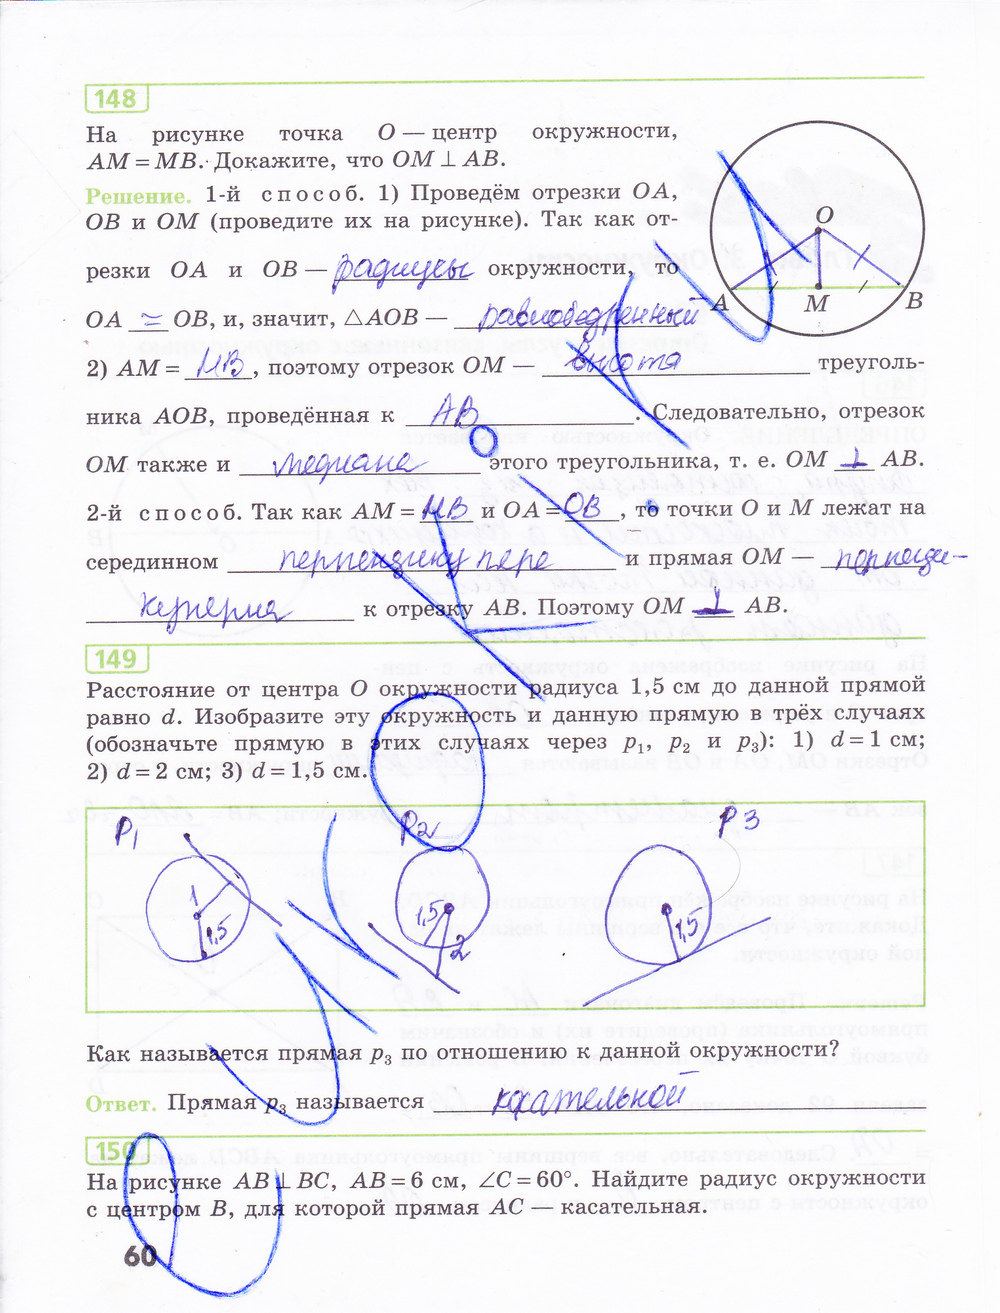 148
На рисунке точка O — центр окружности,
AM = MB. Докажите, что OM ⊥ AB.
Решение. 1-й способ. 1) Проведём отрезки OA,
OB и OM (проведите их на рисунке). Так как от-
резки OA и OB — радиусы окружности, то
OA ≃ OB, и, значит, △AOB — равнобедренный
2) AM = MB, поэтому отрезок OM — высота треуголь-
ника AOB, проведённая к AB. Следовательно, отрезок
OM также и медиана этого треугольника, т. е. OM ⊥ AB.
2-й способ. Так как AM = MB и OA = OB, то точки O и M лежат на
серединном перпендикуляре и прямая OM —
к отрезку AB. Поэтому OM ⊥ AB.
O
A M B
149
Расстояние от центра O окружности радиуса 1,5 см до данной прямой
равно d. Изобразите эту окружность и данную прямую в трёх случаях
(обозначьте прямую в этих случаях через p₁, p₂ и p₃): 1) d = 1 см;
2) d = 2 см; 3) d = 1,5 см.
P1 P2 P3
1 1,5 1,5 2 1,5
Как называется прямая p₃ по отношению к данной окружности?
Ответ. Прямая p₃ называется касательной
150
На рисунке AB ⊥ BC, AB = 6 см, ∠C = 60°. Найдите радиус окружности
с центром B, для которой прямая AC — касательная.
60